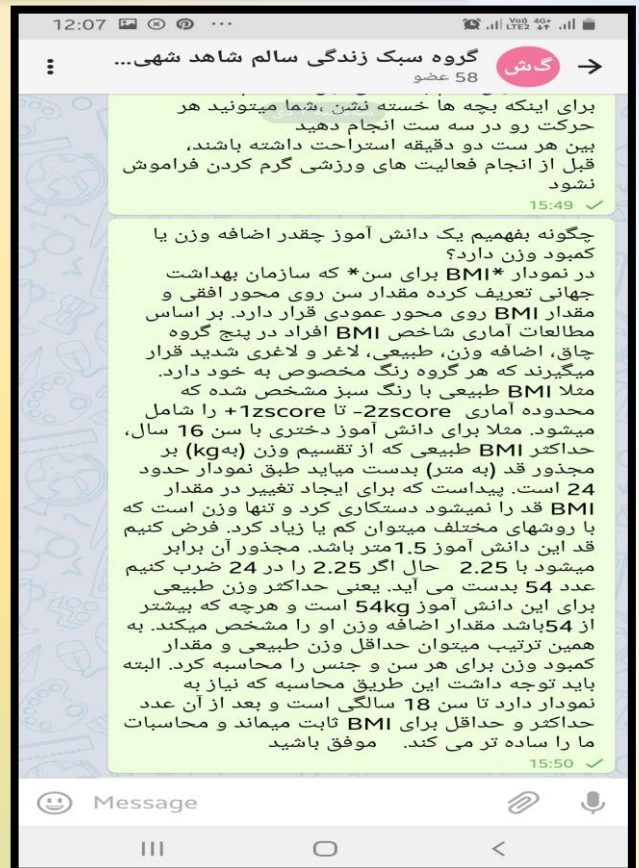 12:07
Vo)) 4G+
LTE2
گروه سبک زندگی سالم شاهد شهی...
58 عضو
گ‌ش
برای اینکه بچه ها خسته نشن ،شما میتونید هر
حرکت رو در سه ست انجام دهید
بین هر ست دو دقیقه استراحت داشته باشند،
قبل از انجام فعالیت های ورزشی گرم کردن فراموش
نشود
15:49
چگونه بفهمیم یک دانش آموز چقدر اضافه وزن یا
کمبود وزن دارد؟
در نمودار *BMI برای سن* که سازمان بهداشت
جهانی تعریف کرده مقدار سن روی محور افقی و
مقدار BMI روی محور عمودی قرار دارد. بر اساس
مطالعات آماری شاخص BMI افراد در پنج گروه
چاق، اضافه وزن، طبیعی، لاغر و لاغری شدید قرار
میگیرند که هر گروه رنگ مخصوص به خود دارد.
مثلا BMI طبیعی با رنگ سبز مشخص شده که
محدوده آماری 2zscore- تا 1zscore+ را شامل
میشود. مثلا برای دانش آموز دختری با سن 16 سال،
حداکثر BMI طبیعی که از تقسیم وزن (بهkg) بر
مجذور قد (به متر) بدست میاید طبق نمودار حدود
24 است. پیداست که برای ایجاد تغییر در مقدار
BMI قد را نمیشود دستکاری کرد و تنها وزن است که
با روشهای مختلف میتوان کم یا زیاد کرد. فرض کنیم
قد این دانش آموز 1.5متر باشد. مجذور آن برابر
میشود با 2.25 حال اگر 2.25 را در 24 ضرب کنیم
عدد 54 بدست می آید. یعنی حداکثر وزن طبیعی
برای این دانش آموز 54kg است و هرچه که بیشتر
از 54باشد مقدار اضافه وزن او را مشخص میکند. به
همین ترتیب میتوان حداقل وزن طبیعی و مقدار
کمبود وزن برای هر سن و جنس را محاسبه کرد. البته
باید توجه داشت این طریق محاسبه که نیاز به
نمودار دارد تا سن 18 سالگی است و بعد از آن عدد
حداکثر و حداقل برای BMI ثابت میماند و محاسبات
ما را ساده تر می کند. موفق باشید
15:50
Message